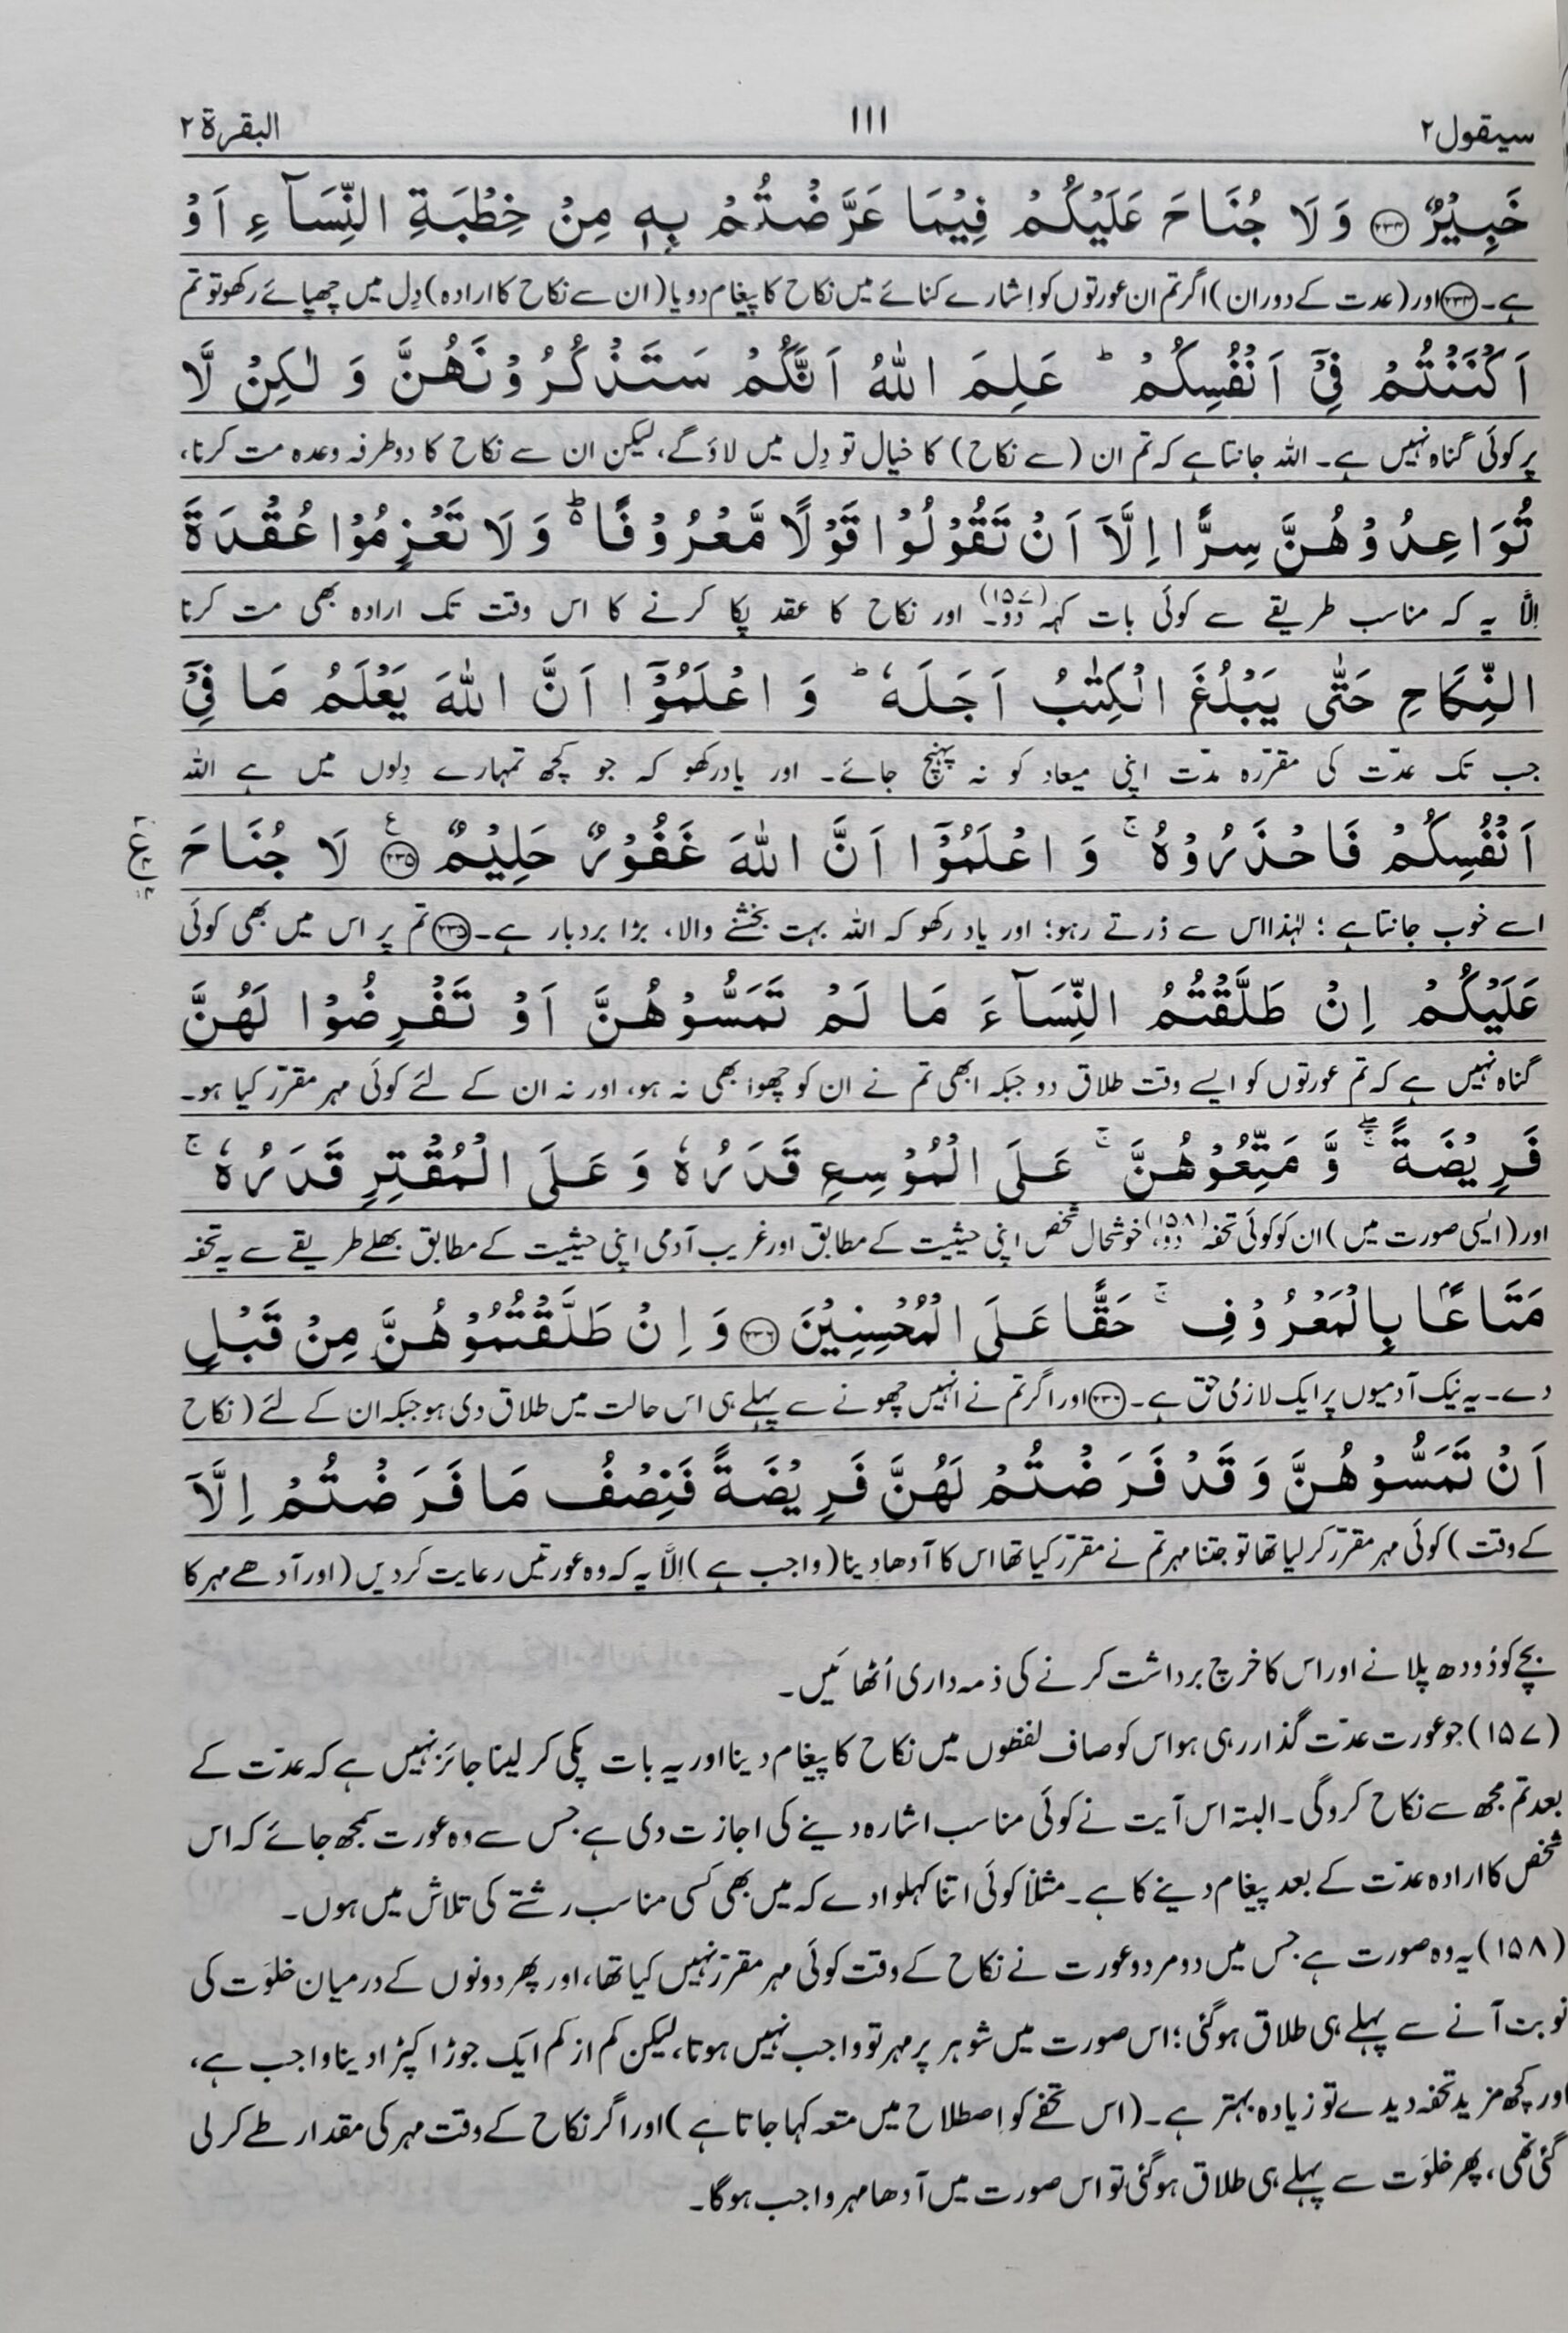 سیقول ۲
۱۱۱
البقرۃ ۲
خَبِيْرٌ ﴿۲۳۴﴾ وَ لَا جُنَاحَ عَلَيْكُمْ فِيْمَا عَرَّضْتُمْ بِهٖ مِنْ خِطْبَةِ النِّسَآءِ اَوْ
ہے۔﴿۲۳۴﴾ اور (عدت کے دوران) اگر تم ان عورتوں کو اِشارے کنائے میں نکاح کا پیغام دو یا (ان سے نکاح کا ارادہ) دِل میں چھپائے رکھو تو تم
اَكْنَنْتُمْ فِيْٓ اَنْفُسِكُمْ ؕ عَلِمَ اللّٰهُ اَنَّكُمْ سَتَذْكُرُوْنَهُنَّ وَ لٰكِنْ لَّا
پر کوئی گناہ نہیں ہے۔ اللہ جانتا ہے کہ تم ان (سے نکاح) کا خیال تو دِل میں لاؤ گے، لیکن ان سے نکاح کا دو طرفہ وعدہ مت کرنا،
تُوَاعِدُوْهُنَّ سِرًّا اِلَّآ اَنْ تَقُوْلُوْا قَوْلًا مَّعْرُوْفًا ؕ۬ وَ لَا تَعْزِمُوْا عُقْدَةَ
اِلَّا یہ کہ مناسب طریقے سے کوئی بات کہہ دو۔(۱۵۷) اور نکاح کا عقد پکا کرنے کا اس وقت تک ارادہ بھی مت کرنا
النِّكَاحِ حَتّٰى يَبْلُغَ الْكِتٰبُ اَجَلَهٗ ؕ وَ اعْلَمُوْٓا اَنَّ اللّٰهَ يَعْلَمُ مَا فِيْٓ
جب تک عدّت کی مقررہ مدّت اپنی میعاد کو نہ پہنچ جائے۔ اور یاد رکھو کہ جو کچھ تمہارے دِلوں میں ہے اللہ
اَنْفُسِكُمْ فَاحْذَرُوْهُ ۚ وَ اعْلَمُوْٓا اَنَّ اللّٰهَ غَفُوْرٌ حَلِيْمٌ ﴿۲۳۵﴾ ع لَا جُنَاحَ
اسے خوب جانتا ہے؛ لہٰذا اس سے ڈرتے رہو؛ اور یاد رکھو کہ اللہ بہت بخشنے والا، بڑا بردبار ہے۔﴿۲۳۵﴾ تم پر اس میں بھی کوئی
عَلَيْكُمْ اِنْ طَلَّقْتُمُ النِّسَآءَ مَا لَمْ تَمَسُّوْهُنَّ اَوْ تَفْرِضُوْا لَهُنَّ
گناہ نہیں ہے کہ تم عورتوں کو ایسے وقت طلاق دو جبکہ ابھی تم نے ان کو چھوا بھی نہ ہو، اور نہ ان کے لئے کوئی مہر مقرّر کیا ہو۔
فَرِيْضَةً ۖۚ وَّ مَتِّعُوْهُنَّ ۚ عَلَى الْمُوْسِعِ قَدَرُهٗ وَ عَلَى الْمُقْتِرِ قَدَرُهٗ ۚ
اور (ایسی صورت میں) ان کو کوئی تحفہ دو،(۱۵۸) خوشحال شخص اپنی حیثیت کے مطابق اور غریب آدمی اپنی حیثیت کے مطابق بھلے طریقے سے یہ تحفہ
مَتَاعًۢا بِالْمَعْرُوْفِ ۚ حَقًّا عَلَى الْمُحْسِنِيْنَ ﴿۲۳۶﴾ وَ اِنْ طَلَّقْتُمُوْهُنَّ مِنْ قَبْلِ
دے۔ یہ نیک آدمیوں پر ایک لازمی حق ہے۔﴿۲۳۶﴾ اور اگر تم نے انہیں چھونے سے پہلے ہی اس حالت میں طلاق دی ہو جبکہ ان کے لئے (نکاح
اَنْ تَمَسُّوْهُنَّ وَ قَدْ فَرَضْتُمْ لَهُنَّ فَرِيْضَةً فَنِصْفُ مَا فَرَضْتُمْ اِلَّآ
کے وقت) کوئی مہر مقرّر کر لیا تھا تو جتنا مہر تم نے مقرّر کیا تھا اس کا آدھا دینا (واجب ہے) اِلَّا یہ کہ وہ عورتیں رعایت کر دیں (اور آدھے مہر کا
بچے کو دُودھ پلانے اور اس کا خرچ برداشت کرنے کی ذمہ داری اُٹھائیں۔
(۱۵۷) جو عورت عدّت گذار رہی ہو اس کو صاف لفظوں میں نکاح کا پیغام دینا اور یہ بات پکی کر لینا جائز نہیں ہے کہ عدّت کے
بعد تم مجھ سے نکاح کرو گی۔ البتہ اس آیت نے کوئی مناسب اشارہ دینے کی اجازت دی ہے جس سے وہ عورت سمجھ جائے کہ اس
شخص کا ارادہ عدّت کے بعد پیغام دینے کا ہے۔ مثلاً کوئی اتنا کہلوا دے کہ میں بھی کسی مناسب رشتے کی تلاش میں ہوں۔
(۱۵۸) یہ وہ صورت ہے جس میں دو مرد و عورت نے نکاح کے وقت کوئی مہر مقرّر نہیں کیا تھا، اور پھر دونوں کے درمیان خلوَت کی
نوبت آنے سے پہلے ہی طلاق ہو گئی؛ اس صورت میں شوہر پر مہر تو واجب نہیں ہوتا، لیکن کم از کم ایک جوڑا کپڑا دینا واجب ہے،
اور کچھ مزید تحفہ دیدے تو زیادہ بہتر ہے۔ (اس تحفے کو اِصطلاح میں متعہ کہا جاتا ہے) اور اگر نکاح کے وقت مہر کی مقدار طے کر لی
گئی تھی، پھر خلوَت سے پہلے ہی طلاق ہو گئی تو اس صورت میں آدھا مہر واجب ہوگا۔